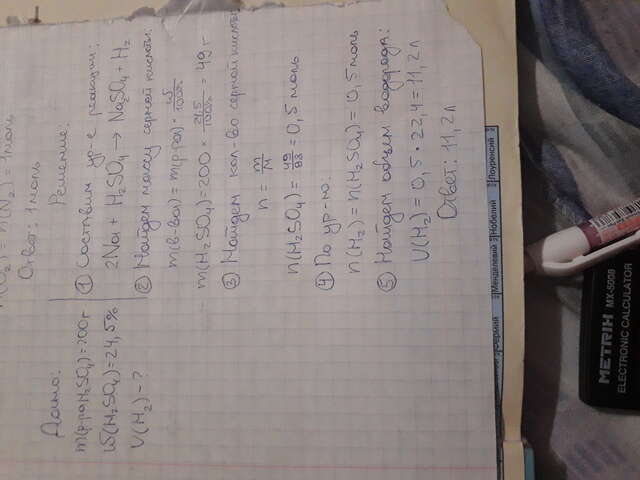 n(O₂) = n(N₂) = 1моль
Ответ: 1 моль
Дано:
m(р-ра H₂SO₄) = 200 г
ω(H₂SO₄) = 24,5%
V(H₂) - ?
Решение:
① Составим ур-е реакции:
2Na + H₂SO₄ → Na₂SO₄ + H₂
② Найдем массу серной кислоты:
m(в-ва) = m(р-ра) · ω/100%
m(H₂SO₄) = 200 · 24,5/100% = 49 г
③ Найдем кол-во серной кислоты
n = m/M
n(H₂SO₄) = 49/98 = 0,5 моль
④ По ур-ю:
n(H₂) = n(H₂SO₄) = 0,5 моль
⑤ Найдем объем водорода:
V(H₂) = 0,5 · 22,4 = 11,2 л
Ответ: 11,2 л
Фермий Менделевий Нобелий Лоуренсий
METRIH MX-5008
ELECTRONIC CALCULATOR